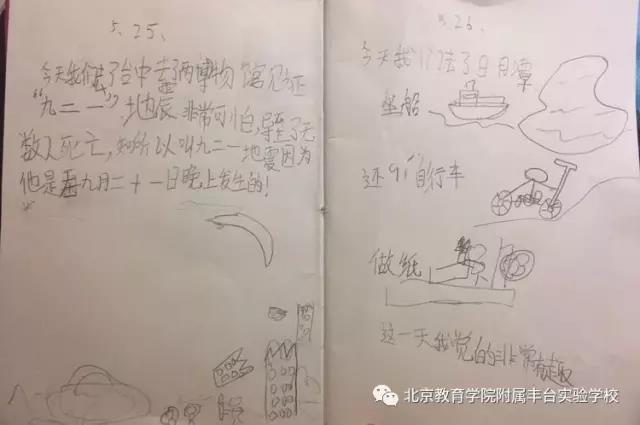 5.25.
今天我们去了台中去了博物馆见证
“九二一”，地辰 非常可怕，导至了无
数人死亡，知所以叫九二一地震因为
他是九月二十一日晚上发生的！
5.26.
今天我们去了日月潭
坐船
还自行车
做纸
这一天我觉的非常有趣
北京教育学院附属丰台实验学校